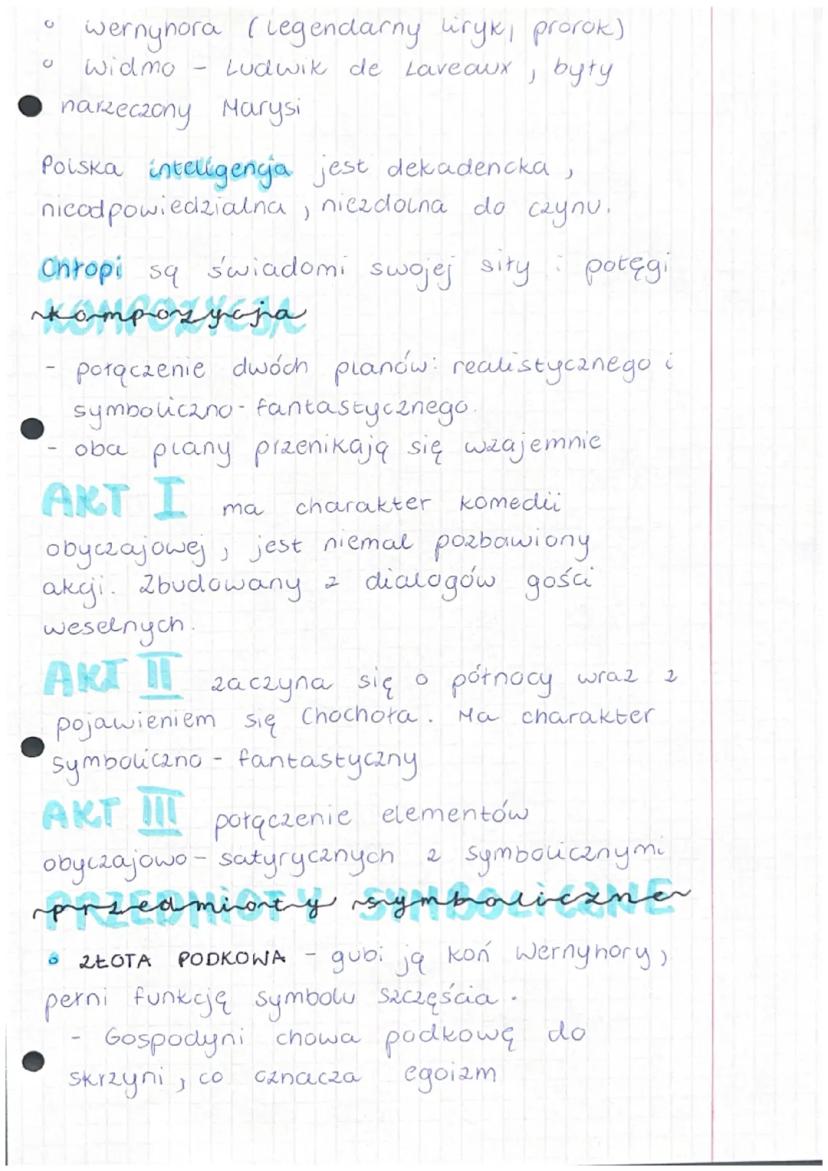 ○ wernyhora (legendarny liryk, prorok)
○ Widmo - Ludwik de Laveaux, były
narzeczony Marysi
Polska inteligencja jest dekadencka,
nieodpowiedzialna, niezdolna do czynu.
Chłopi są świadomi swojej siły i potęgi
kompozycja
- połączenie dwóch planów: realistycznego i
symboliczno-fantastycznego.
- oba plany przenikają się wzajemnie
AKT I ma charakter komedii
obyczajowej, jest niemal pozbawiony
akcji. Zbudowany z dialogów gości
weselnych.
AKT II zaczyna się o północy wraz z
pojawieniem się Chochoła. Ma charakter
symboliczno - fantastyczny
AKT III połączenie elementów
obyczajowo - satyrycznych z symbolicznymi
przedmioty symboliczne
• ZŁOTA PODKOWA - gubi ją koń Wernyhory,
pełni funkcję symbolu szczęścia.
- Gospodyni chowa podkowę do
skrzyni, co oznacza egoizm